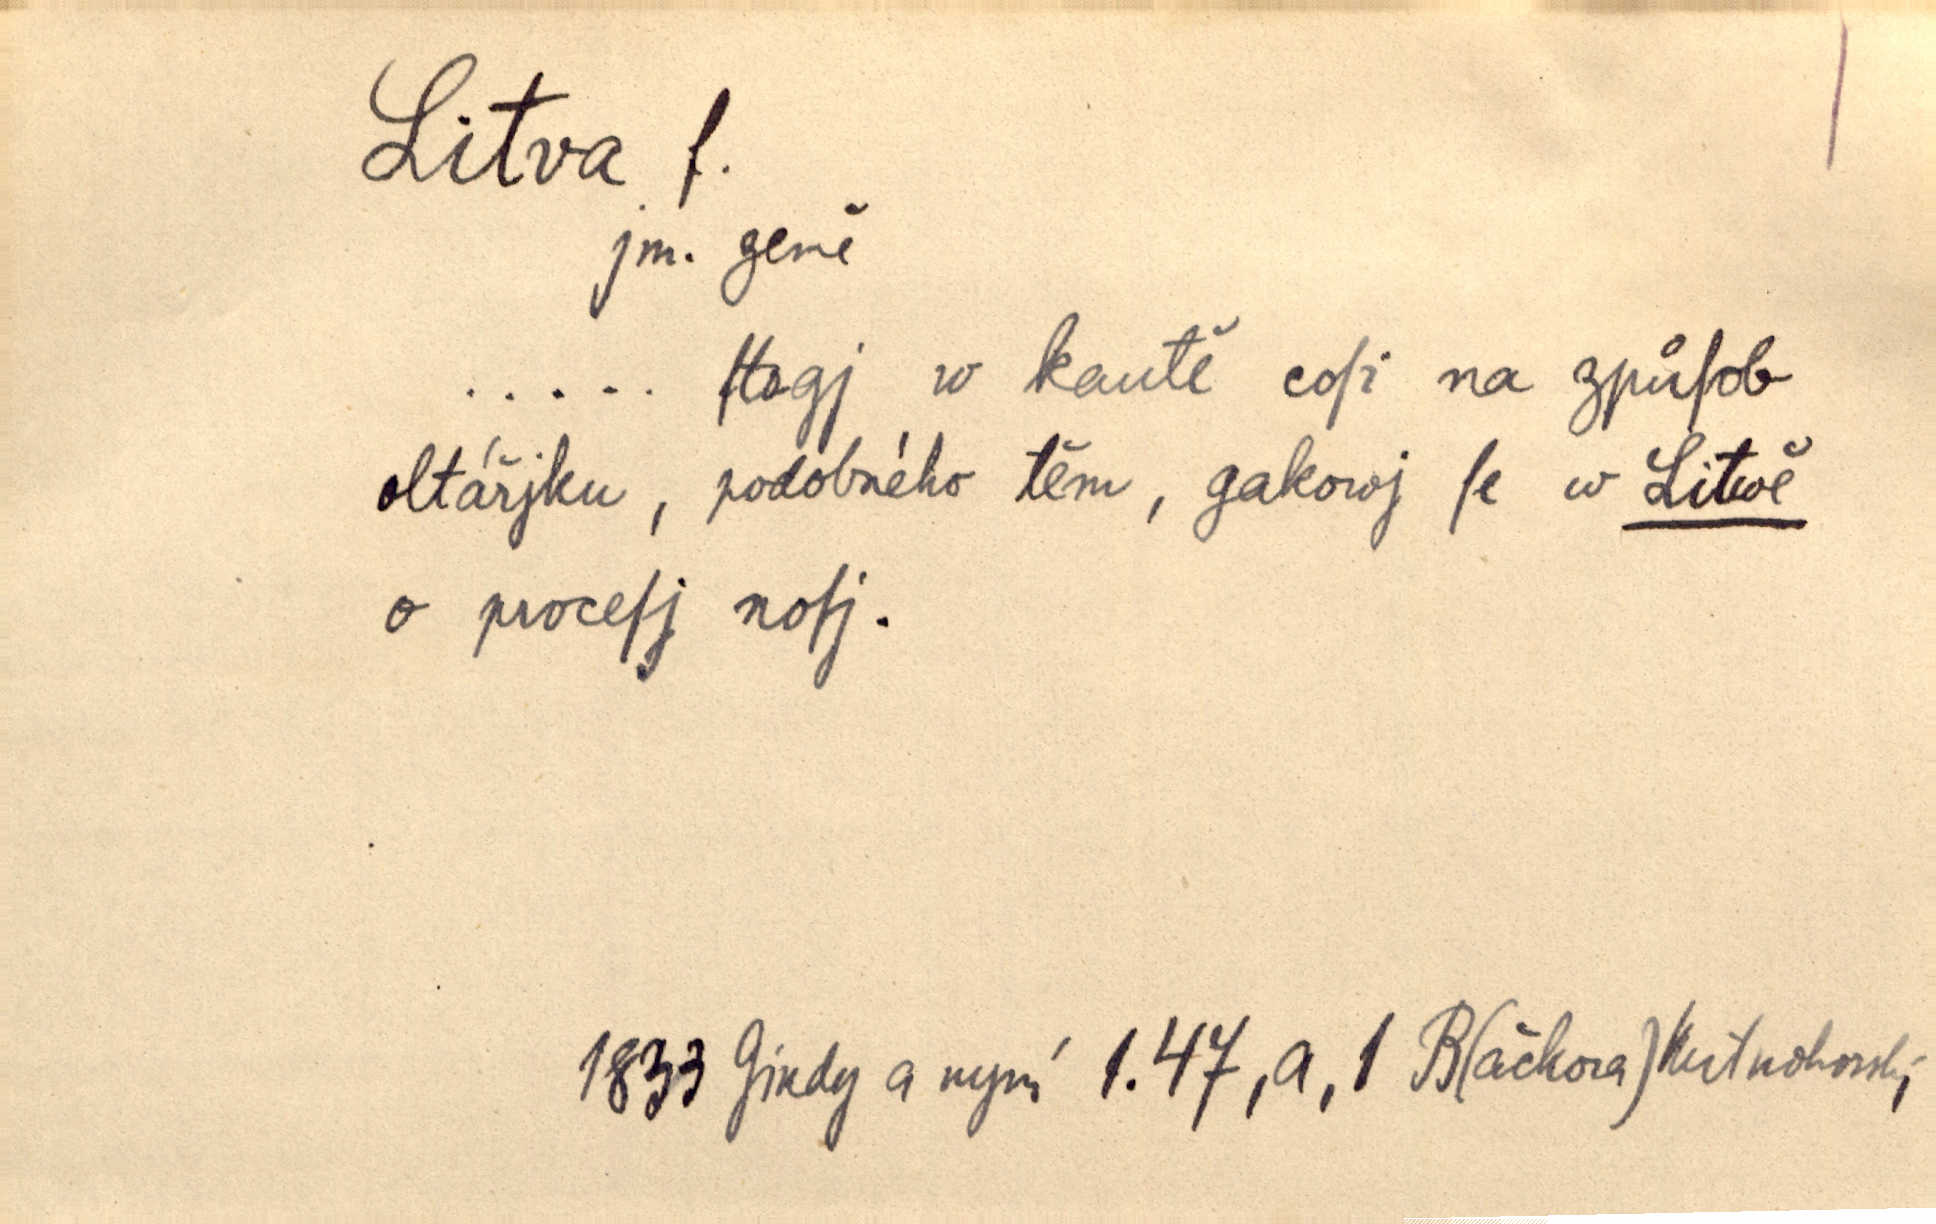 Litva f.
jm. země
..... ſtogj w kautě coſi na způſob
oltářjku, podobného těm, gakowj ſe w Litwě
o proceſj noſj.
1833 Gindy a nynj 1.47, a, 1 B(ačkora) Kutnohorský